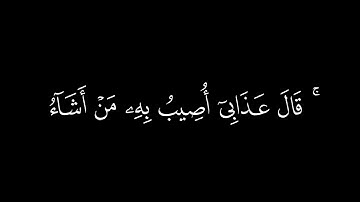 ۚ قَالَ عَذَابِىٓ أُصِيبُ بِهِۦ مَنْ أَشَآءُ